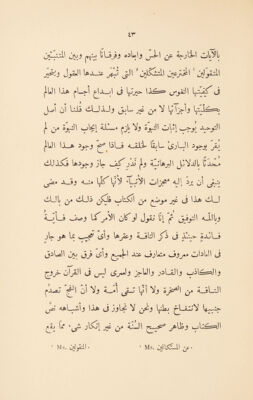 ٤٣
بالآيات الخارجة عن الحسّ والعاده وفرقانًا بينهم وبين المتنبّئين
المتقولين¹ المخترعين المتشكّلين² التى تُبْهَر عندها العقول ويتحيّر
فى كيفيّتها النفوس كذا حيرتها فى ابداع أجسام هذا العالم
بكلّيّتها وأجزائها لا من غير سابق ولـذلـك قُلنا أن أصل
التوحيد يوجب إثبات النبوّة ولا يلزم مسئلة إيجاب النبوّة من لم
يقرّ بوجود البارئ سابقًا لخلقه فاذا صحّ وجود هذا العالم
مُحدَثًا بالدلائل البرهانيّة ولم نَدْرِ كيف جاز وجودها فكذلك
ينبغى أن يردّ إليه معجزات الأنبيآء لأنّها كلّها منه وقد مضى
لك هذا فى غير موضع من الكتاب فليكن ذلك من بالـك
وباللّه التوفيق ثمّ إنّا نقول لو كان الأمر كما وصف فأيّـة
فـائدةٍ حينئذٍ فى ذكر الناقـة وعقرها وأىّ تعجيب بما هو جارٍ
فى العادات معروف متعارف عند الجميع وأىّ فرق بين الصادق
والكاذب والقـادر والعاجز ولعمرى ليس فى القرآن خروج
النـاقـة من الصخرة ولا أنّها تسقى أُمّـة ولا أنّ الفجّ تصدّم
جنبيها لانتفـاخ بطنها ونحن لا نجاوز فى هذا وأشباهه نصّ
الكتاب وظاهر صحيـح السُنّة من غير إنكار شىء ممّا يقع
¹ Ms. المقولين
² Ms. عن المستكلّين